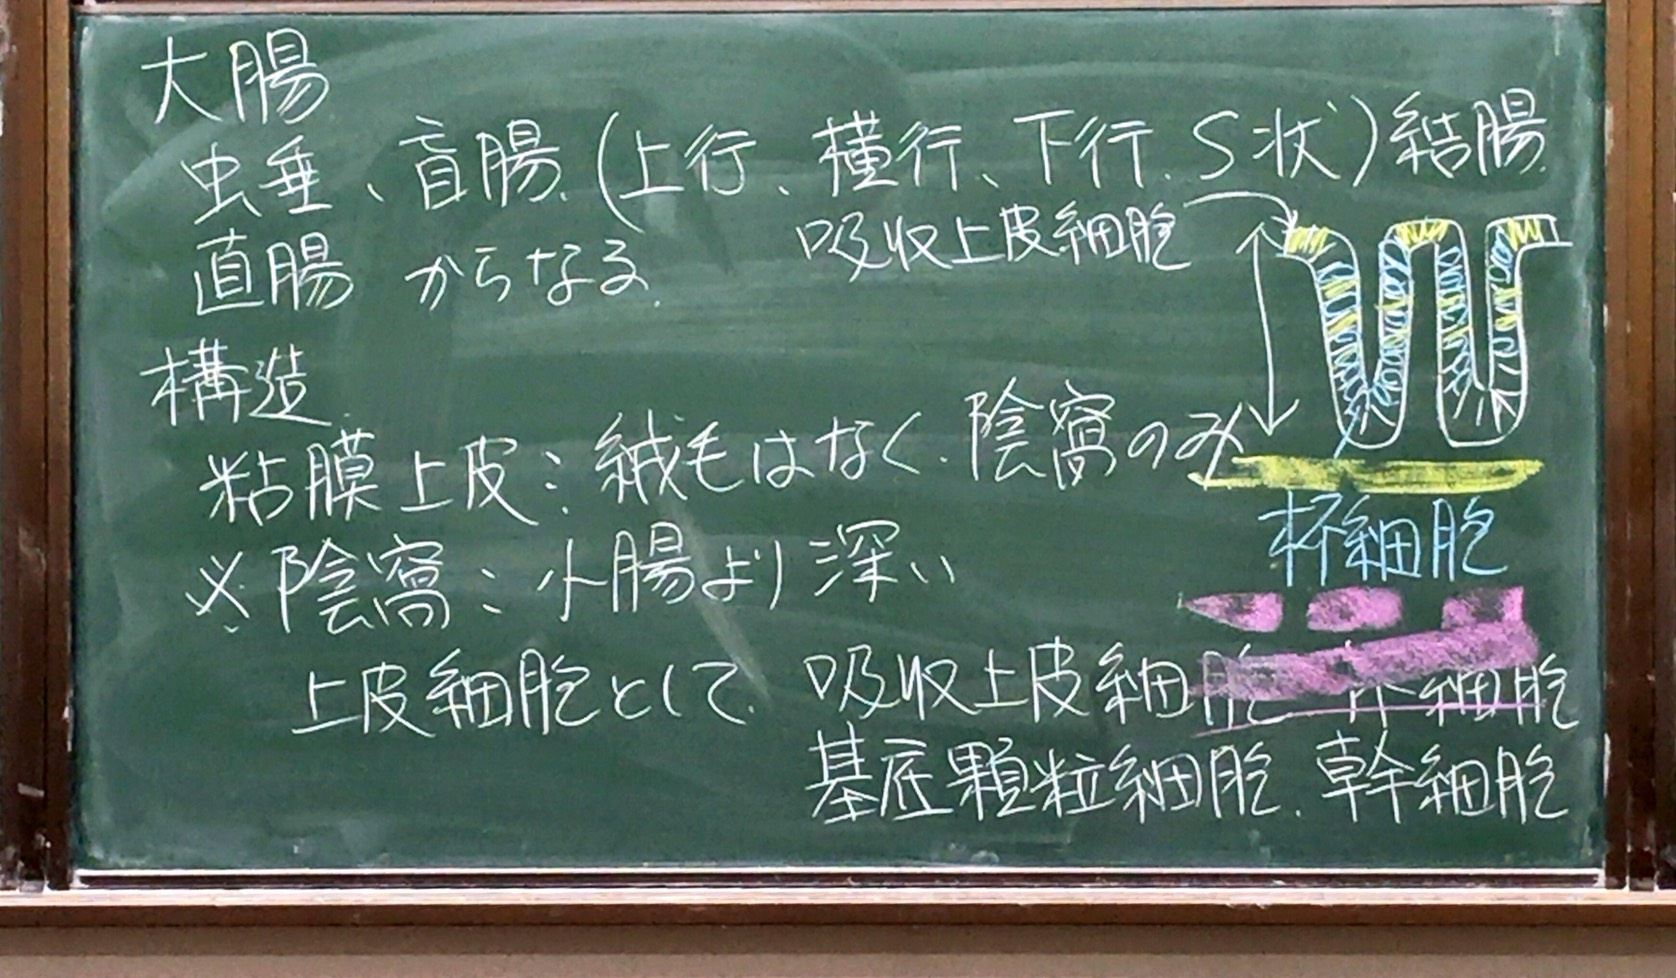 大腸
虫垂、盲腸、(上行、横行、下行、S状)結腸、
直腸 からなる。
吸収上皮細胞
構造
粘膜上皮:絨毛はなく、陰窩のみ
杯細胞
※陰窩:小腸より深い
上皮細胞として、吸収上皮細胞 杯細胞
基底顆粒細胞、幹細胞